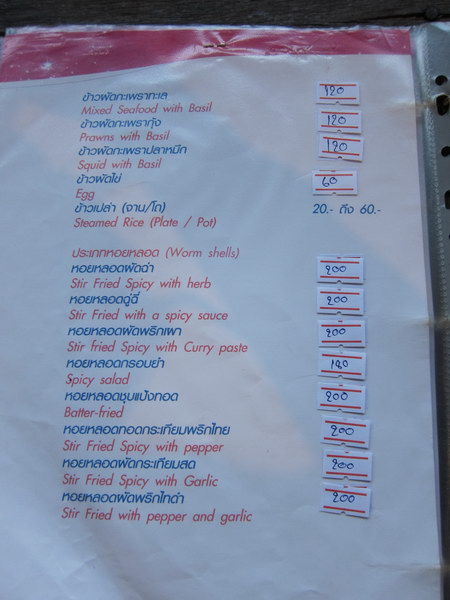 ข้าวผัดกะเพราทะเล 120
Mixed Seafood with Basil
ข้าวผัดกะเพรากุ้ง 120
Prawns with Basil
ข้าวผัดกะเพราปลาหมึก 120
Squid with Basil
ข้าวผัดไข่ 60
Egg
ข้าวเปล่า (จาน/โถ) 20.- ถึง 60.-
Steamed Rice (Plate / Pot)
ประเภทหอยหลอด (Worm shells)
หอยหลอดผัดฉ่า 200
Stir Fried Spicy with herb
หอยหลอดฉู่ฉี่ 200
Stir Fried with a spicy sauce
หอยหลอดผัดพริกเผา 200
Stir fried Spicy with Curry paste
หอยหลอดกรอบยำ 120
Spicy salad
หอยหลอดชุบแป้งทอด 200
Batter-fried
หอยหลอดทอดกระเทียมพริกไทย 200
Stir Fried Spicy with pepper
หอยหลอดผัดกระเทียมสด 200
Stir Fried Spicy with Garlic
หอยหลอดผัดพริกไทดำ 200
Stir Fried with pepper and garlic